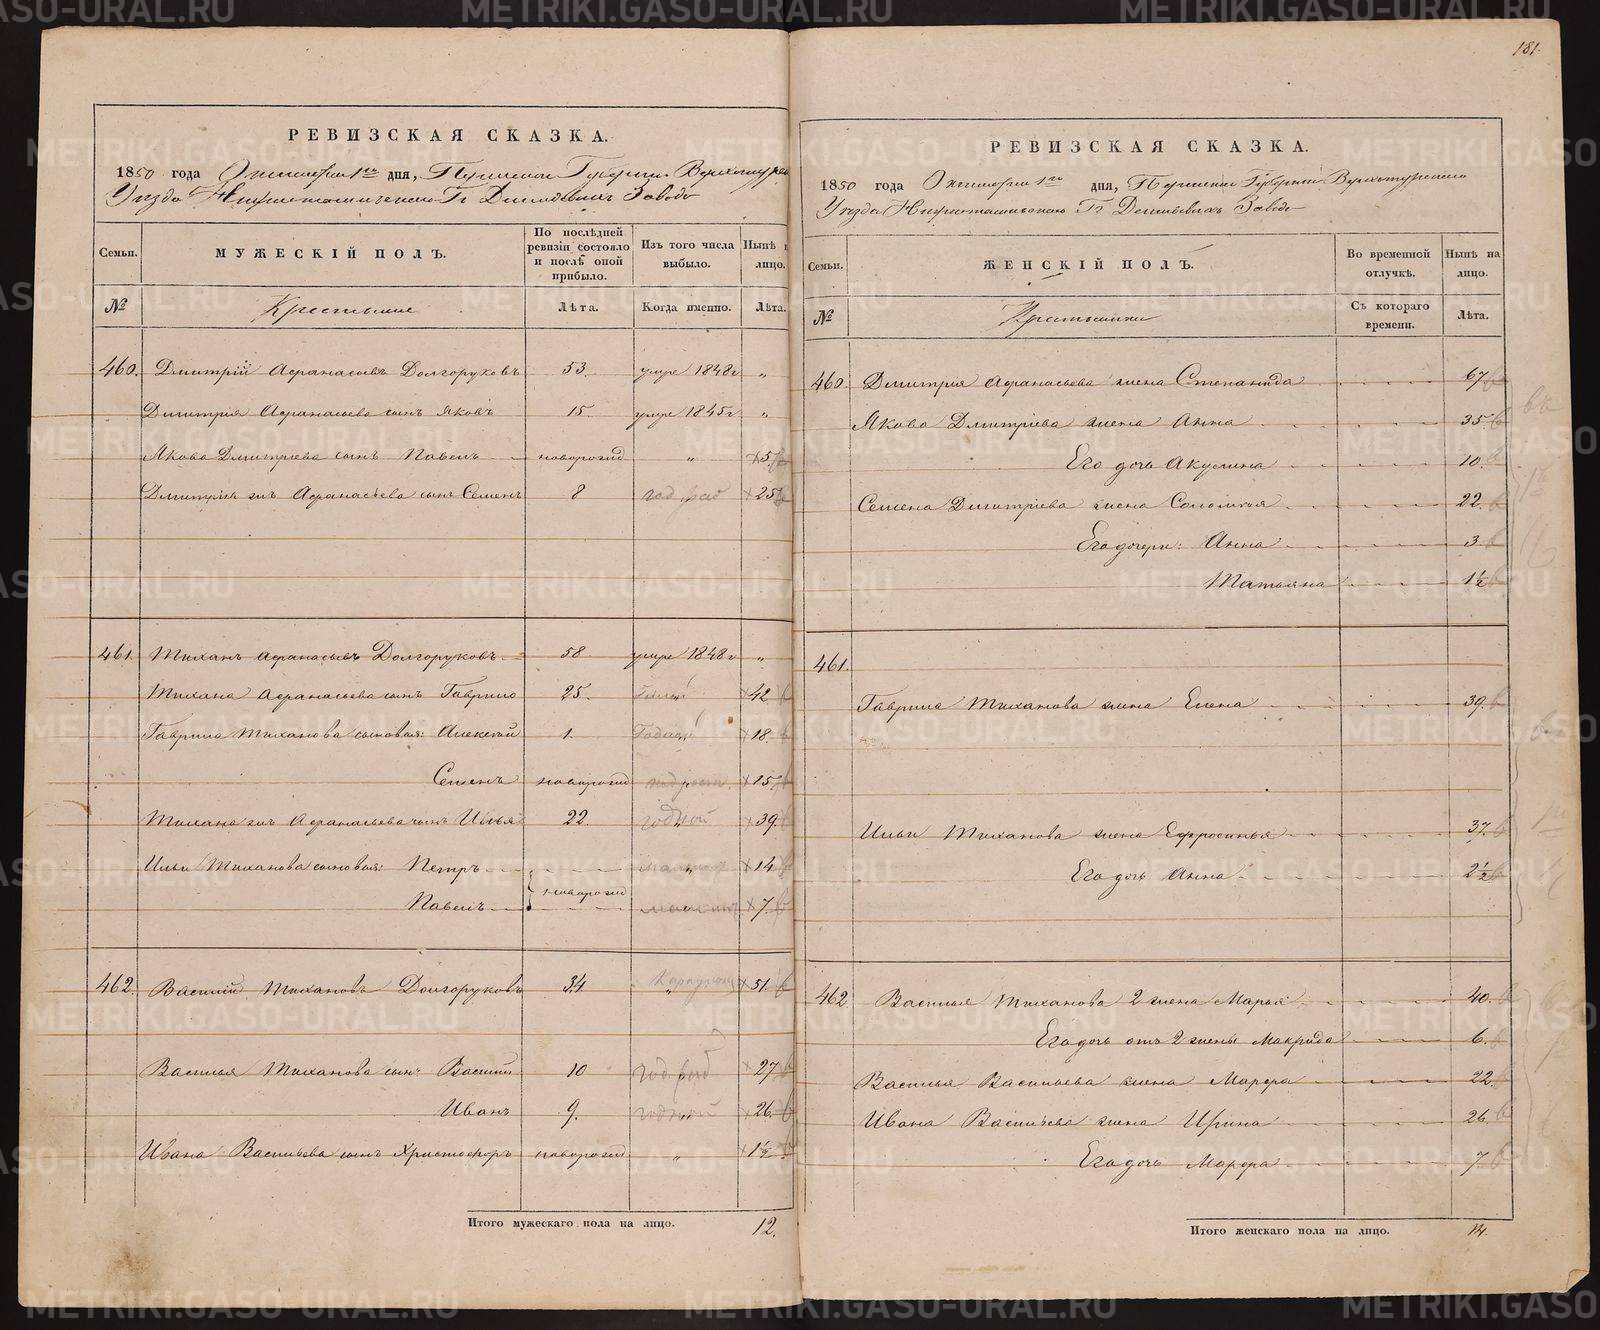 181.
РЕВИЗСКАЯ СКАЗКА.
1850 года Октября 1го дня, Пермской Губернии Верхотурскаго
Уезда Нижнетагильскаго Гг Демидовыхъ Завода
Семьи. МУЖЕСКІЙ ПОЛЪ. По послѣдней ревизіи состояло и послѣ оной прибыло. Изъ того числа выбыло. Нынѣ на лицо.
№ Крестьяне Лѣта. Когда именно. Лѣта.
460. Дмитрій Афанасьевъ Долгоруковъ 53. умре 1848г „
Дмитрія Афанасьева сынъ Яковъ 15. умре 1845г „
Якова Дмитріева сынъ Павелъ новорожд „ 5.
Дмитрія жъ Афанасьева сынъ Семенъ 8 25
461. Тиханъ Афанасьевъ Долгоруковъ 58. умре 1848г „
Тихана Афанасьева сынъ Гаврило 25. 42
Гаврила Тиханова сыновья: Алексѣй 1. 18.
Семенъ новорожд 15
Тихана жъ Афанасьева сынъ Илья 22. годной 39
Ильи Тиханова сыновья: Петръ 14
новорожд
Павелъ 7.
462. Василій Тихановъ Долгоруковъ 34 „ 51.
Василья Тиханова сын: Василій 10 27
Иванъ 9. годной 26
Ивана Васильева сынъ Христофоръ новорожд „ 1½
Итого мужескаго пола на лицо. 12.
РЕВИЗСКАЯ СКАЗКА.
1850 года Октября 1го дня, Пермской Губерніи Верхотурскаго
Уезда Нижнетагильскаго Гг Демидовыхъ Завода
Семьи. ЖЕНСКІЙ ПОЛЪ. Во временной отлучкѣ. Нынѣ на лицо.
№ Крестьянки Съ котораго времени. Лѣта.
460. Дмитрія Афанасьева жена Степанида 67
Якова Дмитріева жена Анна 35
Его дочь Акулина 10
Семена Дмитріева жена Соломія 22.
Его дочери: Анна 3
Татьяна 1½
461.
Гаврила Тиханова жена Елена 39
Ильи Тиханова жена Ефросинья 37.
Его дочь Анна 2½
462. Василья Тиханова 2 жена Марья 40.
Его дочь отъ 2 жены Макрида 6.
Василья Васильева жена Марфа 22.
Ивана Васильева жена Ирина 26.
Его дочь Марфа 7.
Итого женскаго пола на лицо. 14.
METRIKI.GASO-URAL.RU